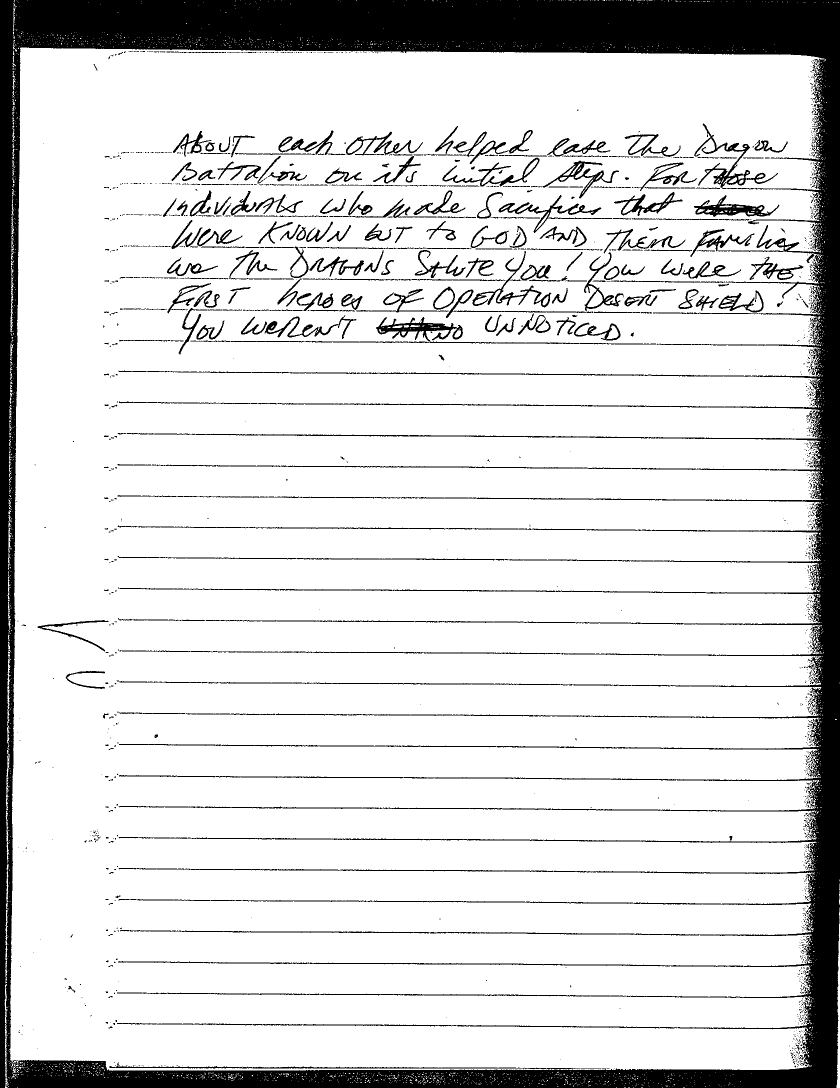 ABOUT each other helped ease the Dragon
Battalion on its initial steps. For those
individuals who made Sacrifices that
Were KNOWN BUT to GOD AND Their Families
we the DRAGONS SALUTE You! You were THE
FIRST heroes OF OPERATION DESERT SHIELD!
You weren't UNNOTICED.